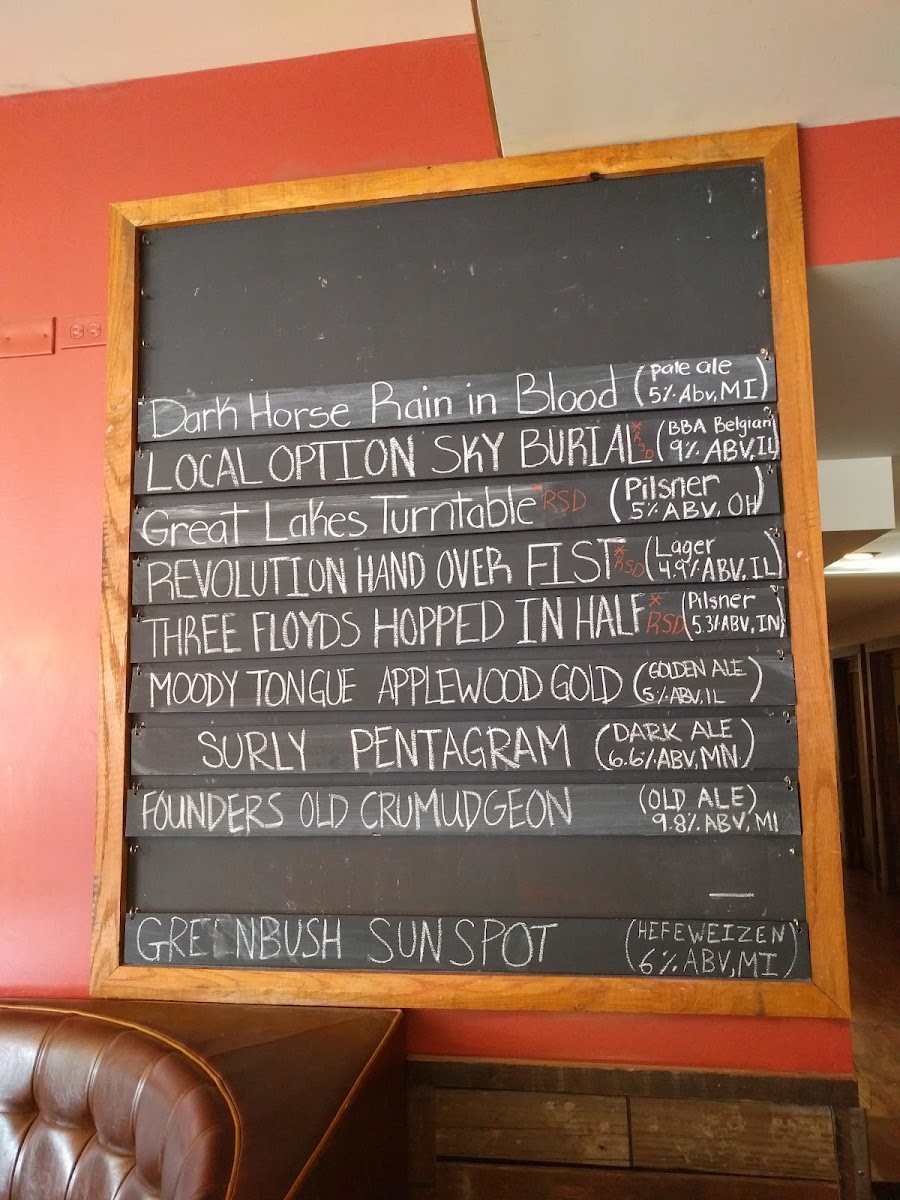 Dark Horse Rain in Blood (pale ale
5% Abv, MI)
LOCAL OPTION SKY BURIAL *RSD (BBA Belgian
9% ABV, IL)
Great Lakes Turntable *RSD (Pilsner
5% ABV, OH)
REVOLUTION HAND OVER FIST *RSD (Lager
4.9% ABV, IL)
THREE FLOYDS HOPPED IN HALF *RSD (Pilsner
5.3% ABV, IN)
MOODY TONGUE APPLEWOOD GOLD (GOLDEN ALE
5% ABV, IL)
SURLY PENTAGRAM (DARK ALE
6.6% ABV, MN.)
FOUNDERS OLD CRUMUDGEON (OLD ALE)
9.8% ABV, MI
GREENBUSH SUNSPOT (HEFEWEIZEN
6% ABV, MI)